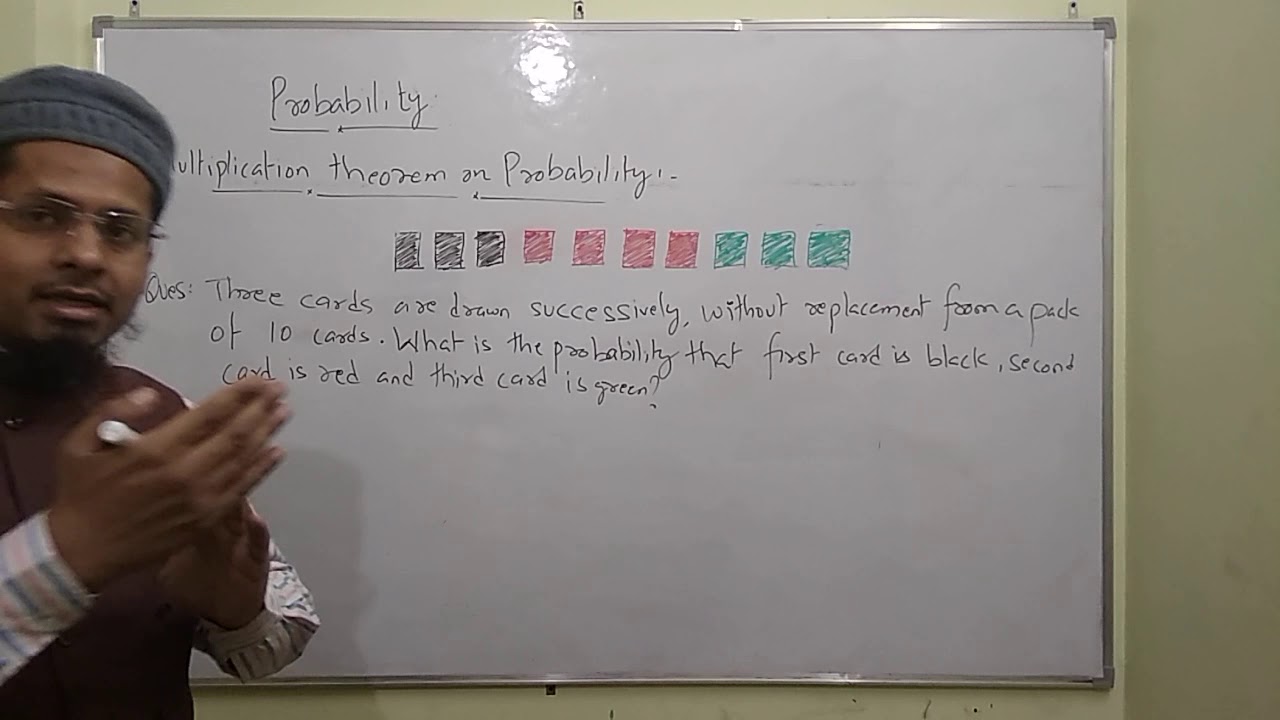 Probability
ultiplication theorem on Probability:-
Ques: Three cards are drawn successively, without replacement from a pack
of 10 cards. What is the probability that first card is black, second
card is red and third card is green?